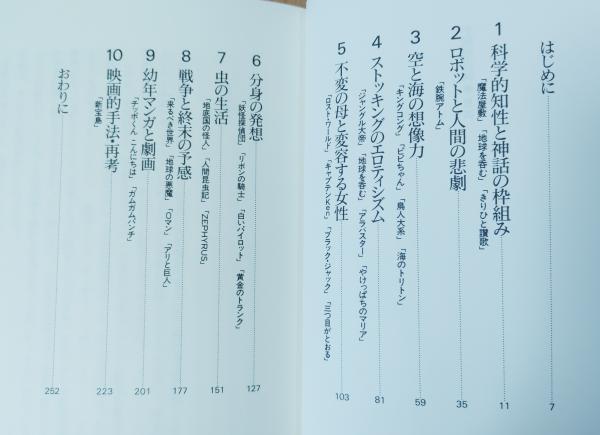 はじめに 7
1 科学的知性と神話の枠組み 11
「魔法屋敷」「地球を呑む」「きりひと讃歌」
2 ロボットと人間の悲劇 35
「鉄腕アトム」
3 空と海の想像力 59
「キングコング」「ピピちゃん」「鳥人大系」「海のトリトン」
4 ストッキングのエロティシズム 81
「ジャングル大帝」「地球を呑む」「アラバスター」「やけっぱちのマリア」
5 不変の母と変容する女性 103
「ロスト・ワールド」「キャプテンKen」「ブラック・ジャック」「三つ目がとおる」
6 分身の発想 127
「妖怪探偵団」「リボンの騎士」「白いパイロット」「黄金のトランク」
7 虫の生活 151
「地底国の怪人」「人間昆虫記」「ZEPHYRUS」
8 戦争と終末の予感 177
「来るべき世界」「地球の悪魔」「0マン」「アリと巨人」
9 幼年マンガと劇画 201
「チッポくんこんにちは」「ガムガムパンチ」
10 映画的手法・再考 223
「新宝島」
おわりに 252